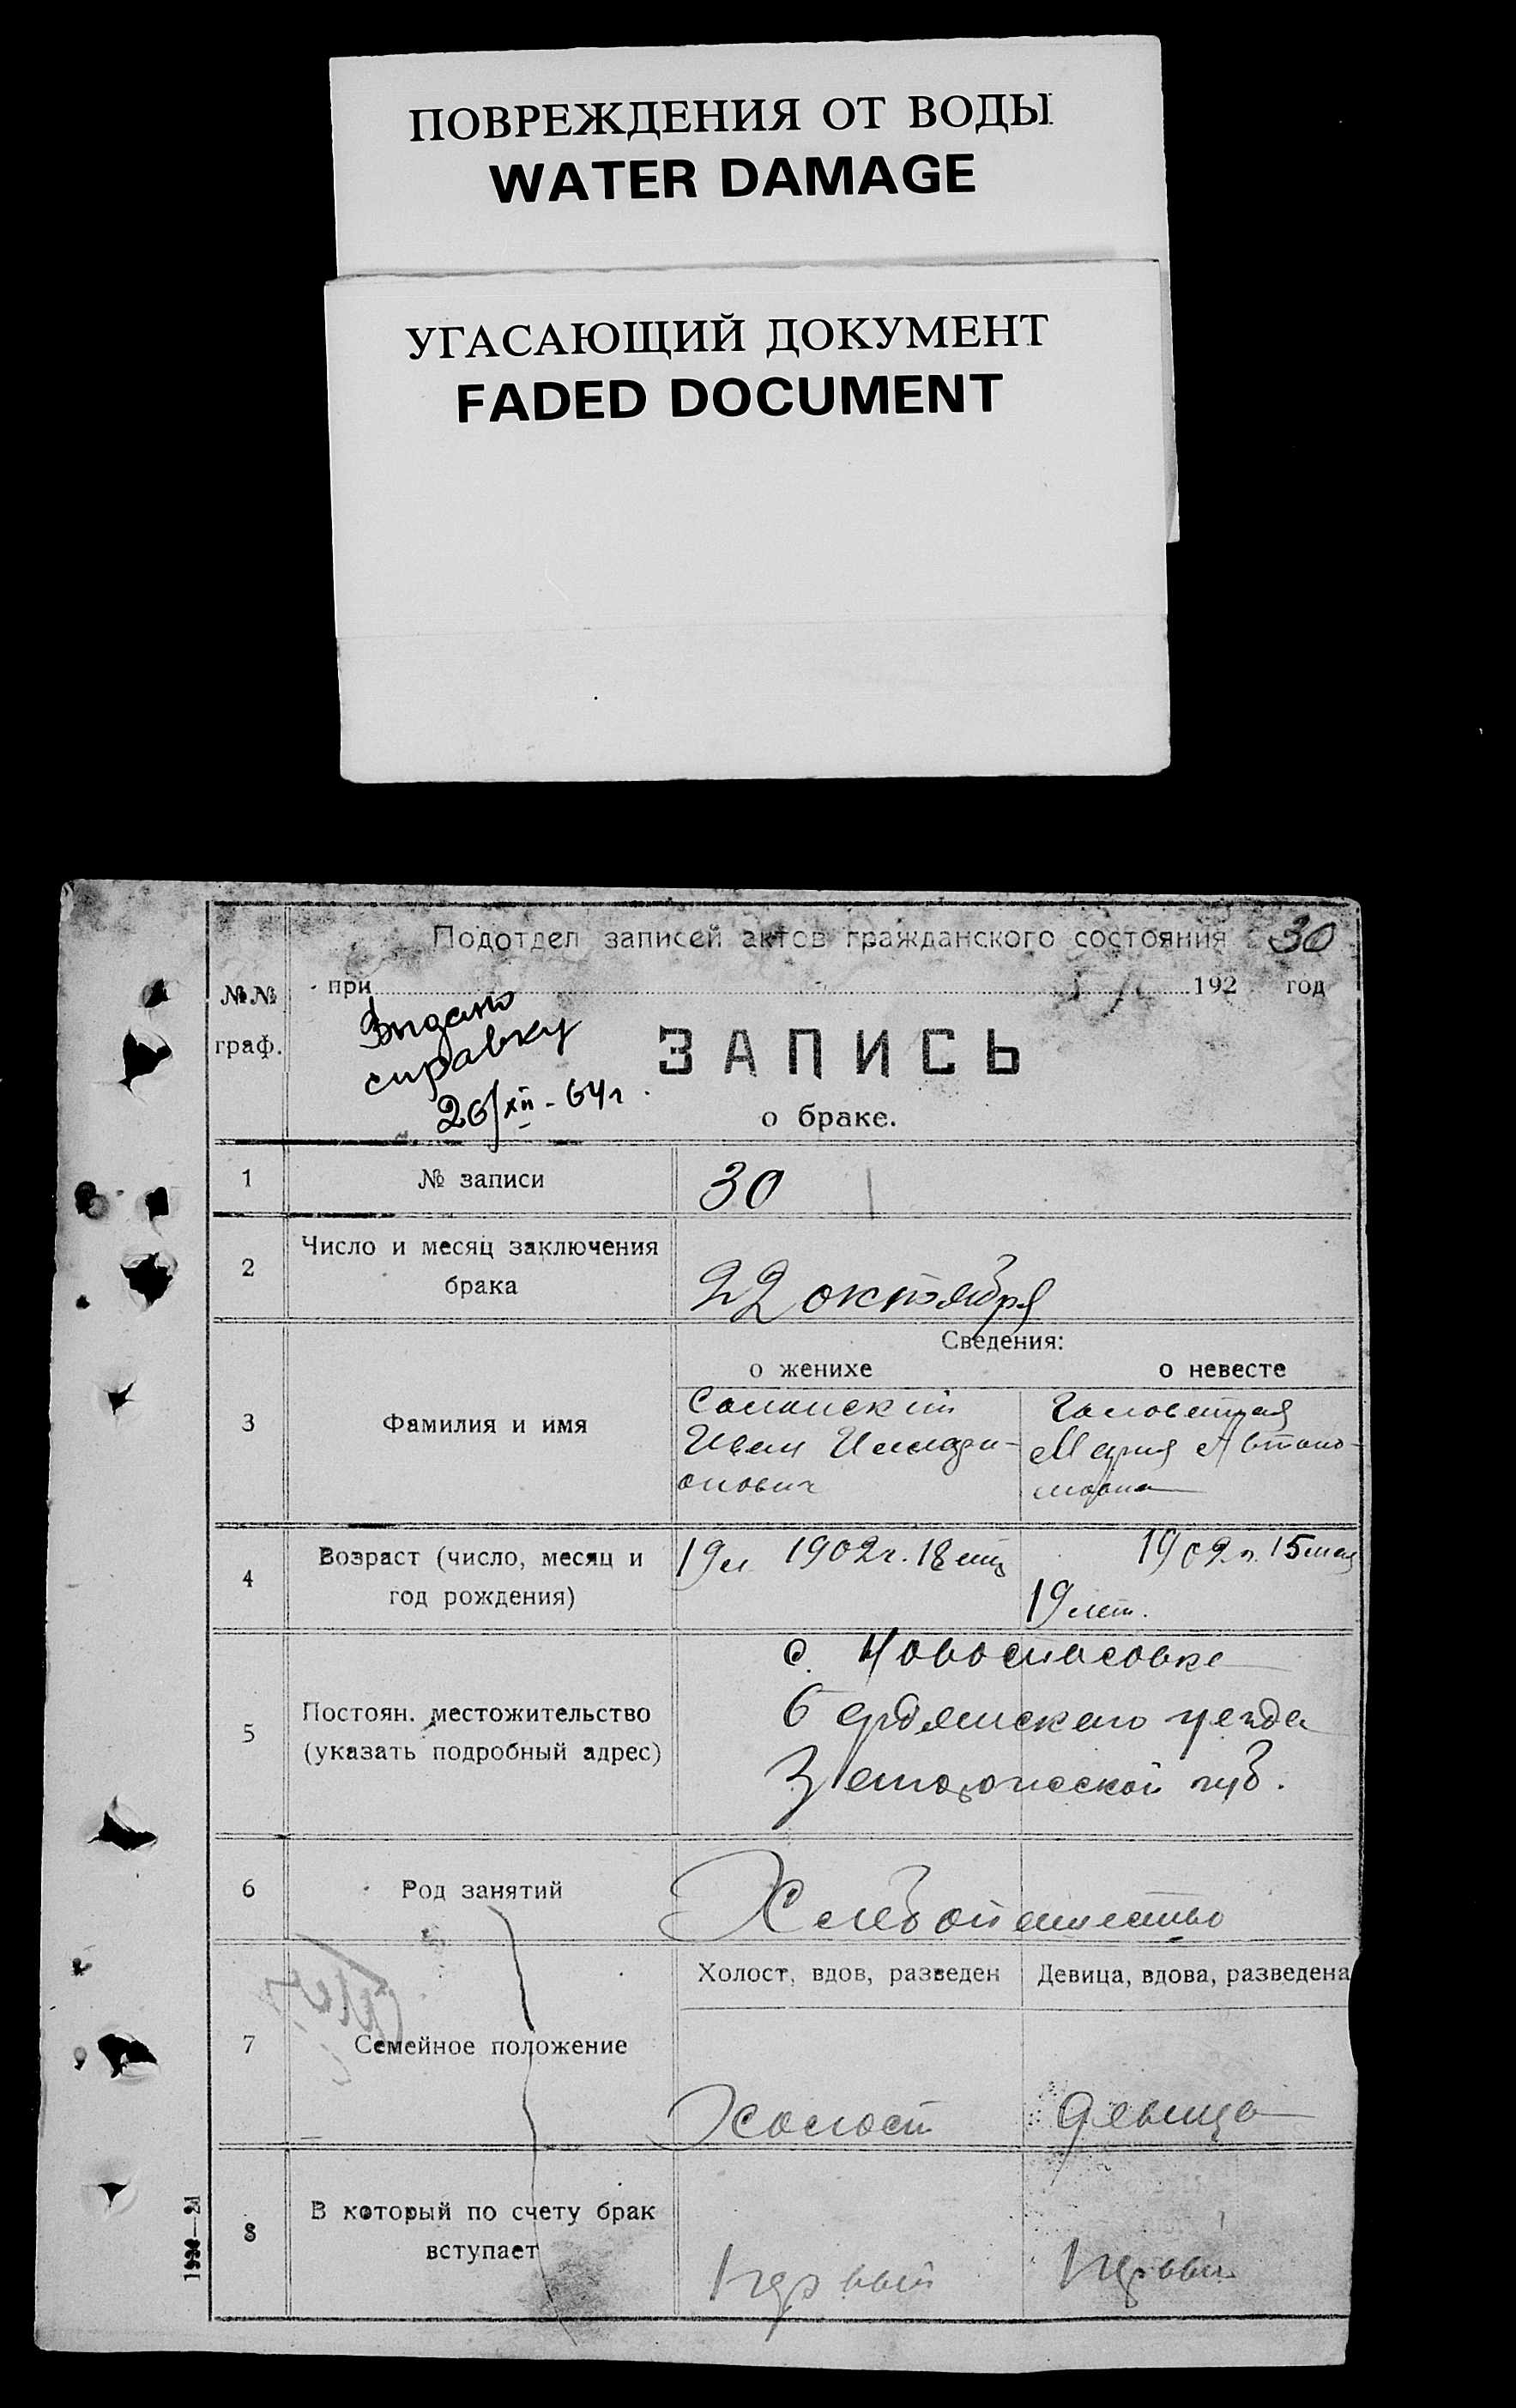 ПОВРЕЖДЕНИЯ ОТ ВОДЫ
WATER DAMAGE
УГАСАЮЩИЙ ДОКУМЕНТ
FADED DOCUMENT
Подотдел записей актов гражданского состояния 30
при 192 год
№№
граф.
Выдано
справку
26/XII - 64 г.
ЗАПИСЬ
о браке.
1 № записи 30
2 Число и месяц заключения
брака
22 октября
Сведения:
о женихе о невесте
3 Фамилия и имя
Иван
Мария Автоно-
мовна
4 Возраст (число, месяц и
год рождения)
19 л 1902 г. 18
1902 г. 15 мая
19 лет.
5 Постоян. местожительство
(указать подробный адрес)
с. Новоспасовке
Бердянского уезда
губ.
6 Род занятий
Хлебопашество
7 Семейное положение
Холост, вдов, разведен Девица, вдова, разведена
Холост девица
8 В который по счету брак
вступает
первый первый